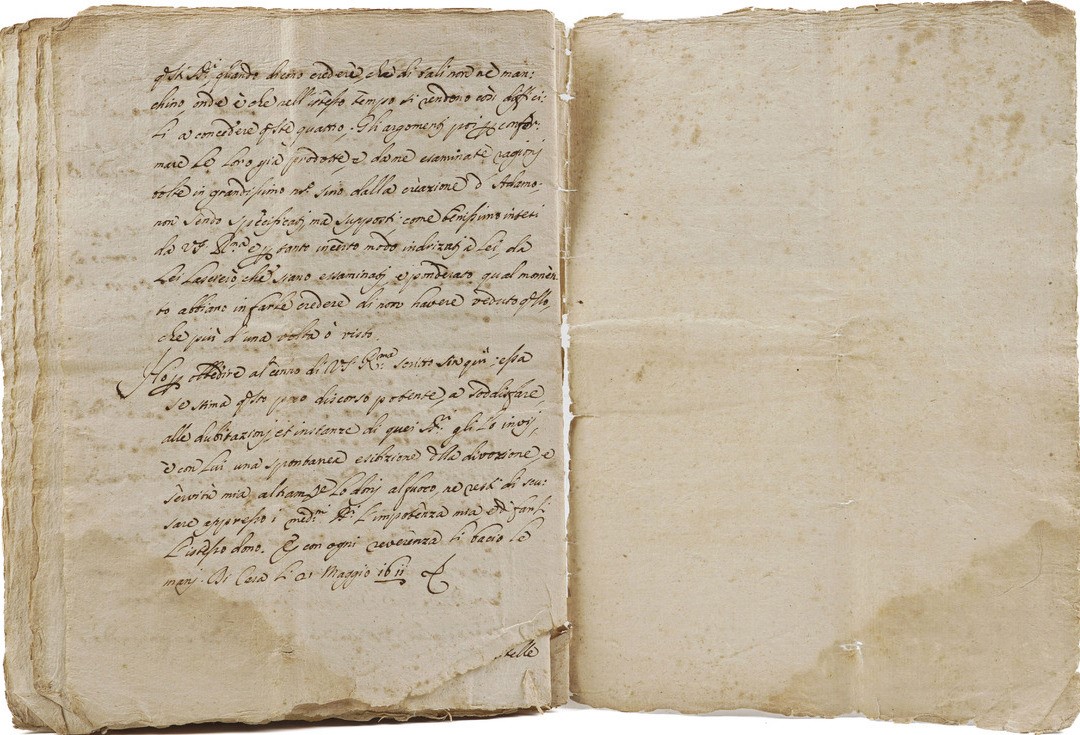 q.sti SS.ri quando dicono credere, che di tali non ne man:
chino, onde è che nell'istesso tempo si rendono così diffici:
li a concedere q.ste quattro. Gli argomenti poi p confer:
mare le loro già prodotte, e da me esaminate ragioni
volte in grandissimo n.º sino dalla creazione d'Adamo.
non sendo specificati, ma supposti come benissimo intesi
da VS. R.ma e p tanto inedito modo indrizati a Lei, da
Lei lascerò, che siano essaminati, e ponderato qual momen:
to abbiano in farle credere di non havere veduto q.llo,
che più d'una volta à visto.
Ho p obbedire al cenno di VS. R.ma scritto sin qui; essa
se stima q.sto mio discorso potente, a soddisfare
alle dubitazioni, et instanze di quei SS.ri gli lo invij,
e con lui una spontanea esibizione della divozione, e
servitù mia, altram.te lo doni al fuoco, ne resti di scu:
sare appresso i med.mi SS.ri l'impotenza mia, ed farli
l'istesso dono. E con ogni reverenza li bacio le
mani. Di Casa li 21 Maggio 1611
stelle